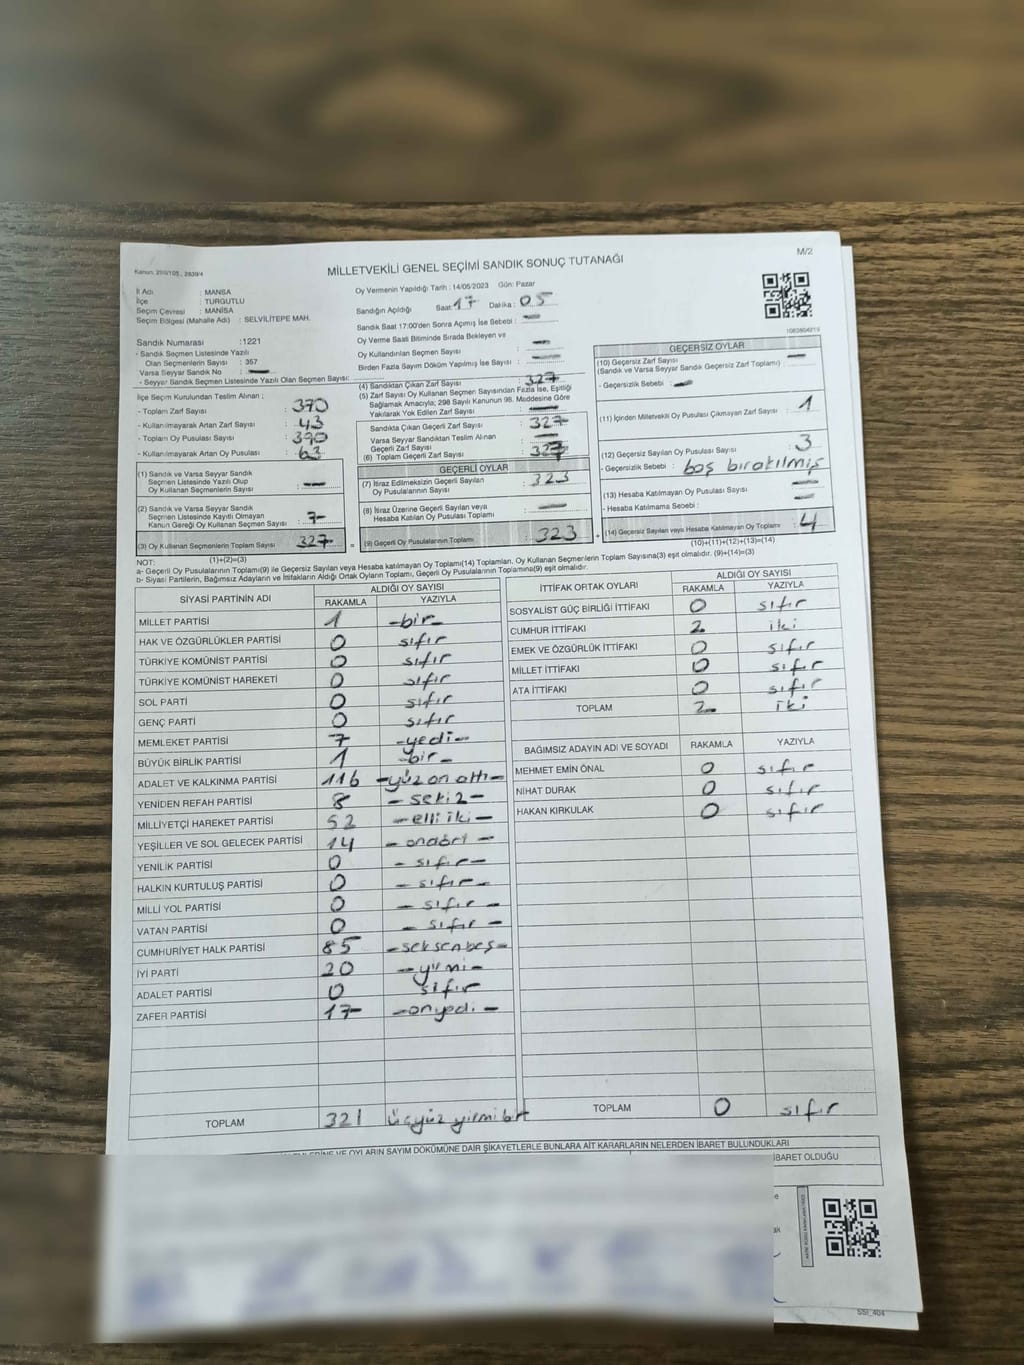 M/2
Kanun: 298/105, 2839/4
MİLLETVEKİLİ GENEL SEÇİMİ SANDIK SONUÇ TUTANAĞI
İl Adı : MANİSA
İlçe : TURGUTLU
Seçim Çevresi : MANİSA
Seçim Bölgesi (Mahalle Adı) : SELVİLİTEPE MAH.
Sandık Numarası :1221
- Sandık Seçmen Listesinde Yazılı
Olan Seçmenlerin Sayısı : 357
Varsa Seyyar Sandık No : —
- Seyyar Sandık Seçmen Listesinde Yazılı Olan Seçmen Sayısı:
Oy Vermenin Yapıldığı Tarih : 14/05/2023 Gün: Pazar
Sandığın Açıldığı Saat: 17 Dakika : 05
Sandık Saat 17:00'den Sonra Açılmış İse Sebebi : —
Oy Verme Saati Bitiminde Sırada Bekleyen ve
Oy Kullandırılan Seçmen Sayısı : —
Birden Fazla Sayım Döküm Yapılmış İse Sayısı : —
İlçe Seçim Kurulundan Teslim Alınan ;
- Toplam Zarf Sayısı : 370
- Kullanılmayarak Artan Zarf Sayısı : 43
- Toplam Oy Pusulası Sayısı : 390
- Kullanılmayarak Artan Oy Pusulası : 63
(1) Sandık ve Varsa Seyyar Sandık
Seçmen Listesinde Yazılı Olup
Oy Kullanan Seçmenlerin Sayısı : —
(2) Sandık ve Varsa Seyyar Sandık
Seçmen Listesinde Kayıtlı Olmayan
Kanun Gereği Oy Kullanan Seçmen Sayısı : 7
(3) Oy Kullanan Seçmenlerin Toplam Sayısı : 327
(1)+(2)=(3)
(4) Sandıktan Çıkan Zarf Sayısı : 327
(5) Zarf Sayısı Oy Kullanan Seçmen Sayısından Fazla İse, Eşitliği
Sağlamak Amacıyla; 298 Sayılı Kanunun 98. Maddesine Göre
Yakılarak Yok Edilen Zarf Sayısı : —
Sandıkta Çıkan Geçerli Zarf Sayısı : 327
Varsa Seyyar Sandıktan Teslim Alınan
Geçerli Zarf Sayısı : —
(6) Toplam Geçerli Zarf Sayısı : 327
GEÇERLİ OYLAR
(7) İtiraz Edilmeksizin Geçerli Sayılan
Oy Pusulalarının Sayısı : 323
(8) İtiraz Üzerine Geçerli Sayılan veya
Hesaba Katılan Oy Pusulası Toplamı : —
(9) Geçerli Oy Pusulalarının Toplamı : 323
GEÇERSİZ OYLAR
(10) Geçersiz Zarf Sayısı : —
(Sandık ve Varsa Seyyar Sandık Geçersiz Zarf Toplamı)
- Geçersizlik Sebebi : —
(11) İçinden Milletvekili Oy Pusulası Çıkmayan Zarf Sayısı : 1
(12) Geçersiz Sayılan Oy Pusulası Sayısı : 3
- Geçersizlik Sebebi : boş bırakılmış
(13) Hesaba Katılmayan Oy Pusulası Sayısı : —
- Hesaba Katılmama Sebebi : —
(14) Geçersiz Sayılan veya Hesaba Katılmayan Oy Toplamı : 4
(10)+(11)+(12)+(13)=(14)
NOT:
a- Geçerli Oy Pusulalarının Toplamı(9) ile Geçersiz Sayılan veya Hesaba katılmayan Oy Toplamı(14) Toplamları, Oy Kullanan Seçmenlerin Toplam Sayısına(3) eşit olmalıdır. (9)+(14)=(3)
b- Siyasi Partilerin, Bağımsız Adayların ve İttifakların Aldığı Ortak Oyların Toplamı, Geçerli Oy Pusulalarının Toplamına(9) eşit olmalıdır.
SİYASİ PARTİNİN ADI ALDIĞI OY SAYISI
RAKAMLA YAZIYLA
MİLLET PARTİSİ 1 -bir-
HAK VE ÖZGÜRLÜKLER PARTİSİ 0 sıfır
TÜRKİYE KOMÜNİST PARTİSİ 0 sıfır
TÜRKİYE KOMÜNİST HAREKETİ 0 sıfır
SOL PARTİ 0 sıfır
GENÇ PARTİ 0 sıfır
MEMLEKET PARTİSİ 7 -yedi-
BÜYÜK BİRLİK PARTİSİ 1 -bir-
ADALET VE KALKINMA PARTİSİ 116 -yüz on altı-
YENİDEN REFAH PARTİSİ 8 -sekiz-
MİLLİYETÇİ HAREKET PARTİSİ 52 -elli iki-
YEŞİLLER VE SOL GELECEK PARTİSİ 14 -ondört-
YENİLİK PARTİSİ 0 -sıfır-
HALKIN KURTULUŞ PARTİSİ 0 -sıfır-
MİLLİ YOL PARTİSİ 0 -sıfır-
VATAN PARTİSİ 0 -sıfır-
CUMHURİYET HALK PARTİSİ 85 -seksenbeş-
İYİ PARTİ 20 -yirmi-
ADALET PARTİSİ 0 sıfır
ZAFER PARTİSİ 17 -onyedi-
TOPLAM 321 üçyüz yirmi bir
İTTİFAK ORTAK OYLARI ALDIĞI OY SAYISI
RAKAMLA YAZIYLA
SOSYALİST GÜÇ BİRLİĞİ İTTİFAKI 0 sıfır
CUMHUR İTTİFAKI 2 iki
EMEK VE ÖZGÜRLÜK İTTİFAKI 0 sıfır
MİLLET İTTİFAKI 0 sıfır
ATA İTTİFAKI 0 sıfır
TOPLAM 2 iki
BAĞIMSIZ ADAYIN ADI VE SOYADI RAKAMLA YAZIYLA
MEHMET EMİN ÖNAL 0 sıfır
NİHAT DURAK 0 sıfır
HAKAN KIRKULAK 0 sıfır
TOPLAM 0 sıfır
VE OYLARIN SAYIM DÖKÜMÜNE DAİR ŞİKAYETLERLE BUNLARA AİT KARARLARIN NELERDEN İBARET BULUNDUKLARI
İBARET OLDUĞU